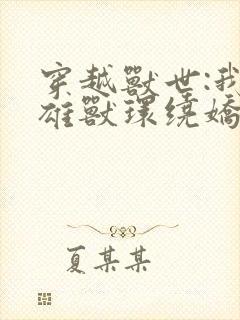 穿越獸世:我
雄獸環繞嬌
夏某某